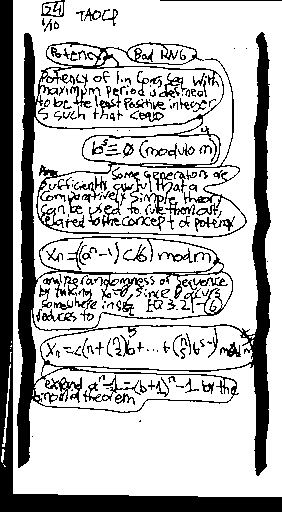 54
1/10 TAOCP
Potency Bad RNG
Potency of lin cong seq with
maximum period is defined
to be the least positive integer
s such that
b^s ≡ 0 (modulo m)
Some generators are
sufficiently awful that a
comparatively simple theory
can be used to rule them out,
related to the concept of potency
Xn = ((a^n - 1) c/b) mod m
randomness of sequence
by taking X0=0, since 0 occurs
somewhere in seq [EQ 3.2.1 - 6]
reduces to
Xn = c(n + (n 2)b + ... + (n s)b^s-1) mod m
expand a^n - 1 = (b+1)^n - 1 by the
binomial theorem